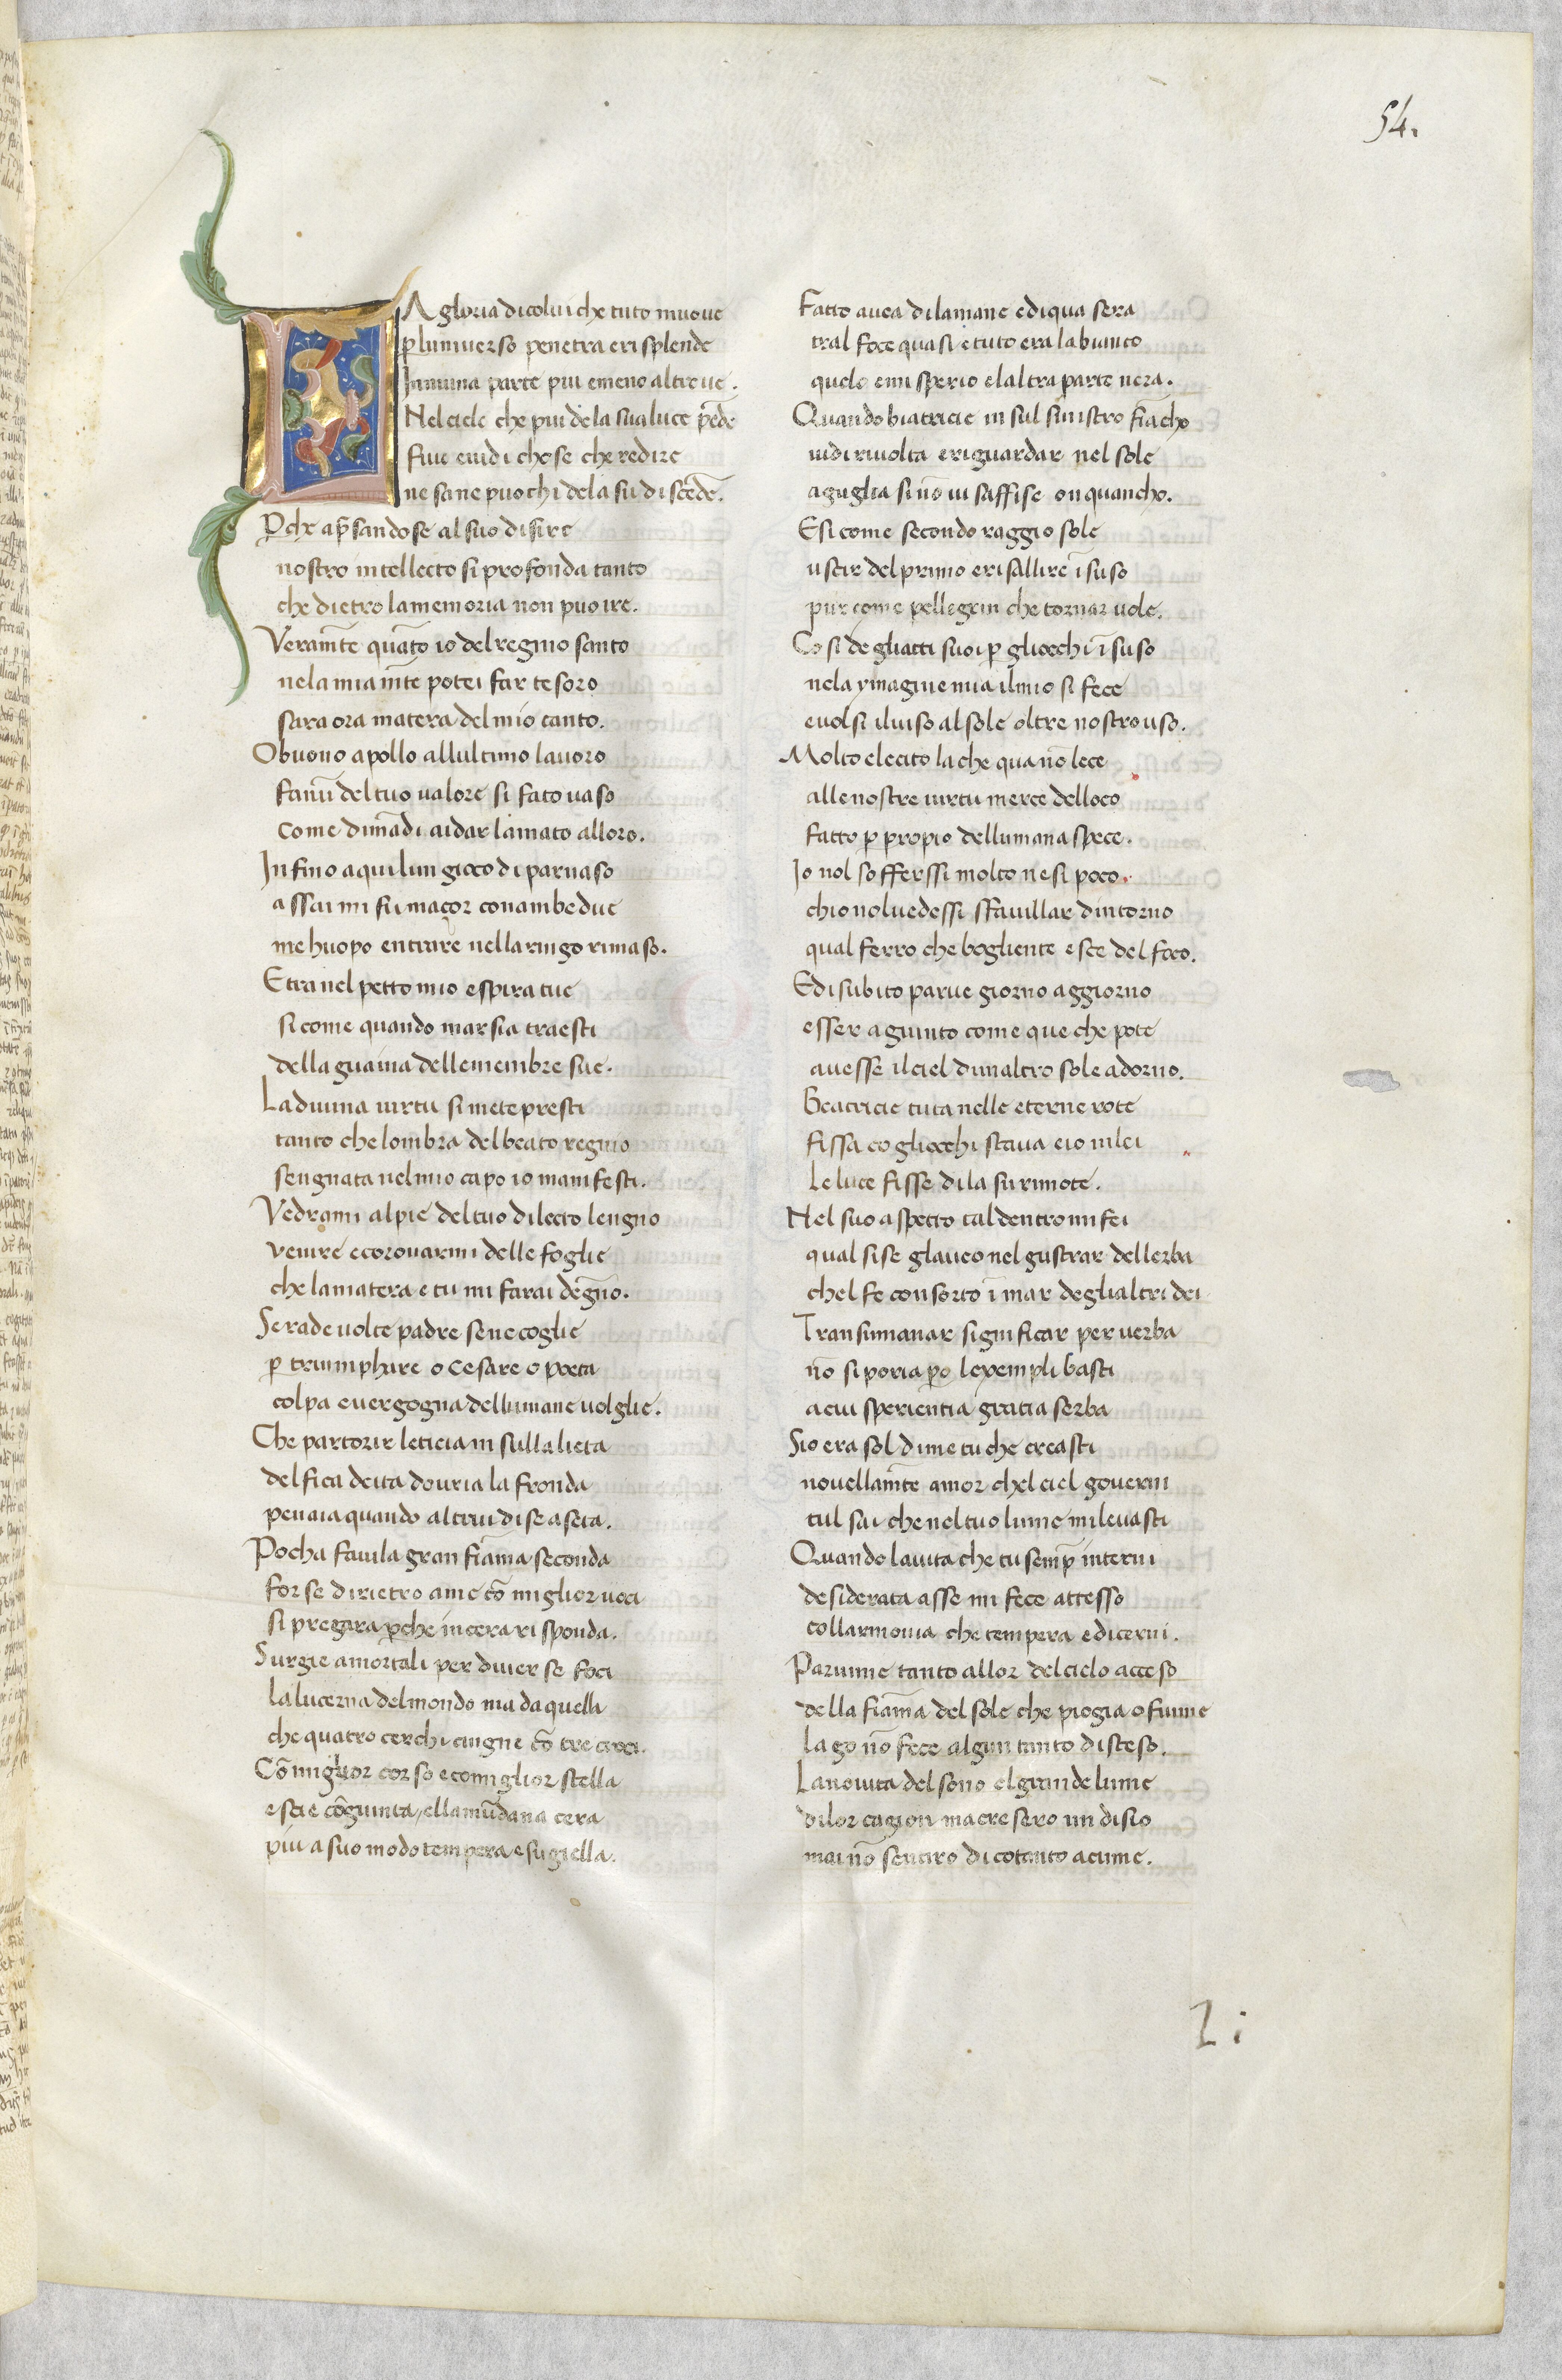 54.
LA gloria dicolui che tuto muove
ꝑluniuerso penetra erisplende
Inniuna parte piu emeno altroue.
Nelciele che piu dela sualuce p̄nde
fiue euidi chose che redire
ne sane puochi dela su disce̅de̅.
Pche ap̄sandose al suo disire
nostro intellecto si profonda tanto
che dietro lamemoria non puo ire.
Veram̅te qua̅to io delregnio santo
nela mia m̅te potei far tesoro
sara ora matera delmio canto.
Obuono apollo allultimo lauoro
fam̅i deltuo ualore si fato uaso
come dima̅di aidar lamato alloro.
Infino aqui lun gioco di parnaso
assai mi fu maçor conambedue
me huopo entrare nellaringo rimaso.
Etra nel petto mio espira tue
si come quando marsia traesti
della guaina dellemembre sue.
Ladiuina uirtu si mete presti
tanto che lombra delbeato regnio
sengnata nelmio capo io manifesti.
Vedrami alpie deltuo dilecto lengno
venire ecoronarmi delle foglie
che lamatera e tu mi farai degn̅o.
Se rade uolte padre sene coglie
ꝑ triumphare o cesare o poeta
colpa euergogna dellumane uolglie.
Che partorir leticia in sullalieta
delfica deita douria la fronda
penaia quando altrui dise aseta.
Pocha fauila gran fia̅ma seconda
forse dirietro ame co̅ miglior uoci
si pregara ꝑche incera risponda.
Surgie amortali per diuerse foci
la lucerna delmondo ma da quella
che quatro cerchi cingne co̅ tre croci.
Co̅ miglior corso e comiglior stella
escie co̅giunta, ellamu̅dana cera
piu asuo modo tempera e sugiella.
Fatto auea dilamane ediqua sera
tral foce quasi e tuto era labianco
quelo emisperio elaltra parte nera.
Quando biatricie in sul sinistro fia̅cho
uidi riuolta eriguardar nel sole
aguglia si no̅ ui saffise onquancho.
Esi come secondo raggio sole
uscir delprimo erisallire i̅ suso
pur come pellegrin che tornar uole.
Cosi degliatti suoi ꝑ gliocchi i̅ suso
nela ymagine mia ilmio si fece
euolsi iluiso alsole oltre nostro uso.
Molto elecito la che qua no̅ lece
alle nostre uirtu merce delloco
fatto ꝑ propio dellumana spece.
Io nol sofferssi molto ne si poco.
chio noluedessi sfauillar dintorno
qual ferro che bogliente esce del foco.
Edi subito parue giorno aggiorno
esser agiunto come que che pote
auesse ilciel dunaltro sole adorno.
Beatricie tuta nelle eterne rote
fissa co gliocchi staua eio inlei
Le luce fisse dila su rimote.
Nel suo aspetto tal dentro mi fei
qual sise glauco nel gustrar dellerba
chel fe consorto i̅ mar deglialtri dei
Transumanar significar per uerba
no̅ si poria ꝑo lexempli basti
acui sperientia gratia serba
Sio era sol dime tu che creasti
nouellam̅te amor chel ciel governi
tul sai che neltuo lume mi leuasti
Quando lauita che tu semꝑ interni
desiderata asse mi fece attesso
collarmonia che tempera e dicerni.
Paruime tanto allor delcielo acceso
della fia̅ma del sole che piogia o fiume
lago no̅ fece algun tanto disteso.
Lanouita del sono elgrande lume
dilor cagion macresero un disio
mai no̅ sentiro dicotanto acume.
2i